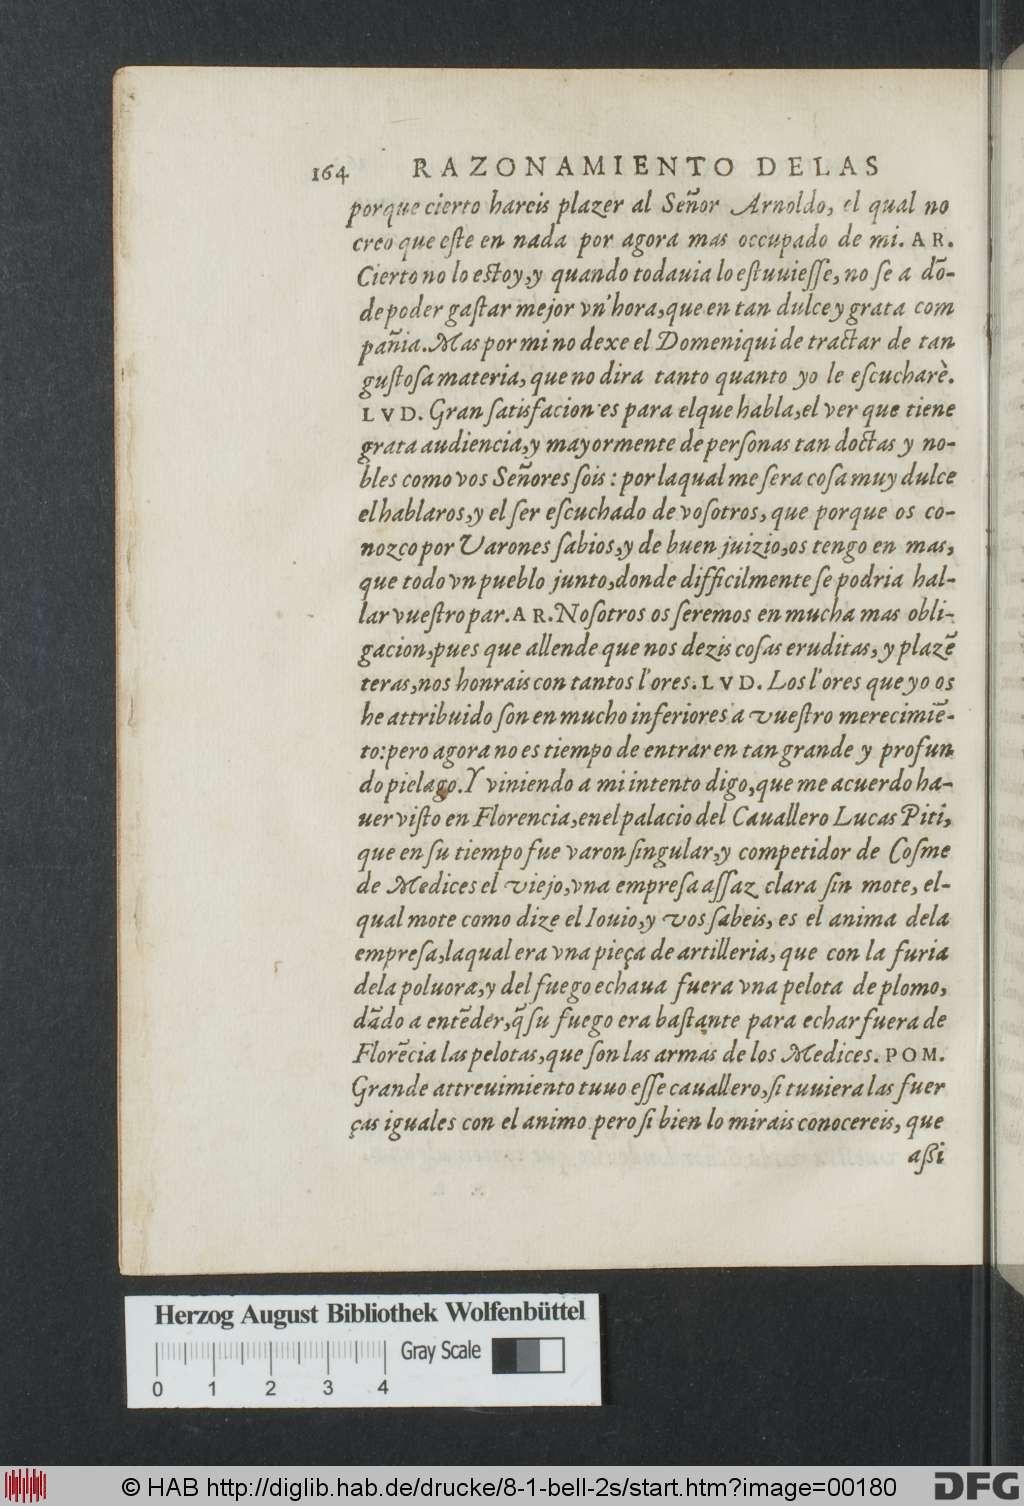 164 RAZONAMIENTO DELAS
porque cierto hareis plazer al Señor Arnoldo, el qual no
creo que eſte en nada por agora mas occupado de mi. AR.
Cierto no lo estoy, y quando todauia lo eſtuuieſſe, no ſe a dō-
de poder gaſtar mejor vn'hora, que en tan dulce y grata com
pañia. Mas por mi no dexe el Domeniqui de tractar de tan
guſtoſa materia, que no dira tanto quanto yo le eſcucharè.
LVD. Gran ſatisfacion es para el que habla, el ver que tiene
grata audiencia, y mayormente de perſonas tan doctas y no-
bles como vos Señores ſois: por laqual me ſera coſa muy dulce
el hablaros, y el ſer eſcuchado de voſotros, que porque os co-
nozco por Varones ſabios, y de buen juizio, os tengo en mas,
que todo vn pueblo junto, donde difficilmente ſe podria hal-
lar vueſtro par. AR. Noſotros os ſeremos en mucha mas obli-
gacion, pues que allende que nos dezis coſas eruditas, y plazē
teras, nos honrais con tantos l'ores. LVD. Los l'ores que yo os
he attribuido ſon en mucho inferiores a vueſtro merecimiē-
to: pero agora no es tiempo de entrar en tan grande y profun
do pielago. Y viniendo a mi intento digo, que me acuerdo ha-
uer viſto en Florencia, enel palacio del Cauallero Lucas Piti,
que en ſu tiempo fue varon ſingular, y competidor de Coſme
de Medices el viejo, vna empreſa aſſaz clara ſin mote, el-
qual mote como dize el Iouio, y vos ſabeis, es el anima dela
empreſa, laqual era vna pieça de artilleria, que con la furia
dela poluora, y del fuego echaua fuera vna pelota de plomo,
dādo a entēder, q̄ ſu fuego era baſtante para echar fuera de
Florēcia las pelotas, que ſon las armas de los Medices. POM.
Grande attreuimiento tuuo eſſe cauallero, ſi tuuiera las fuer
ças iguales con el animo pero ſi bien lo mirais conocereis, que
aſſi
Herzog August Bibliothek Wolfenbüttel
Gray Scale
0 1 2 3 4
© HAB http://diglib.hab.de/drucke/8-1-bell-2s/start.htm?image=00180
DFG